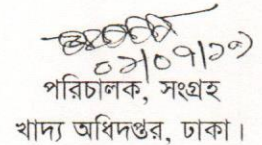 ০২/০৭/১৭
পরিচালক, সংগ্রহ
খাদ্য অধিদপ্তর, ঢাকা।